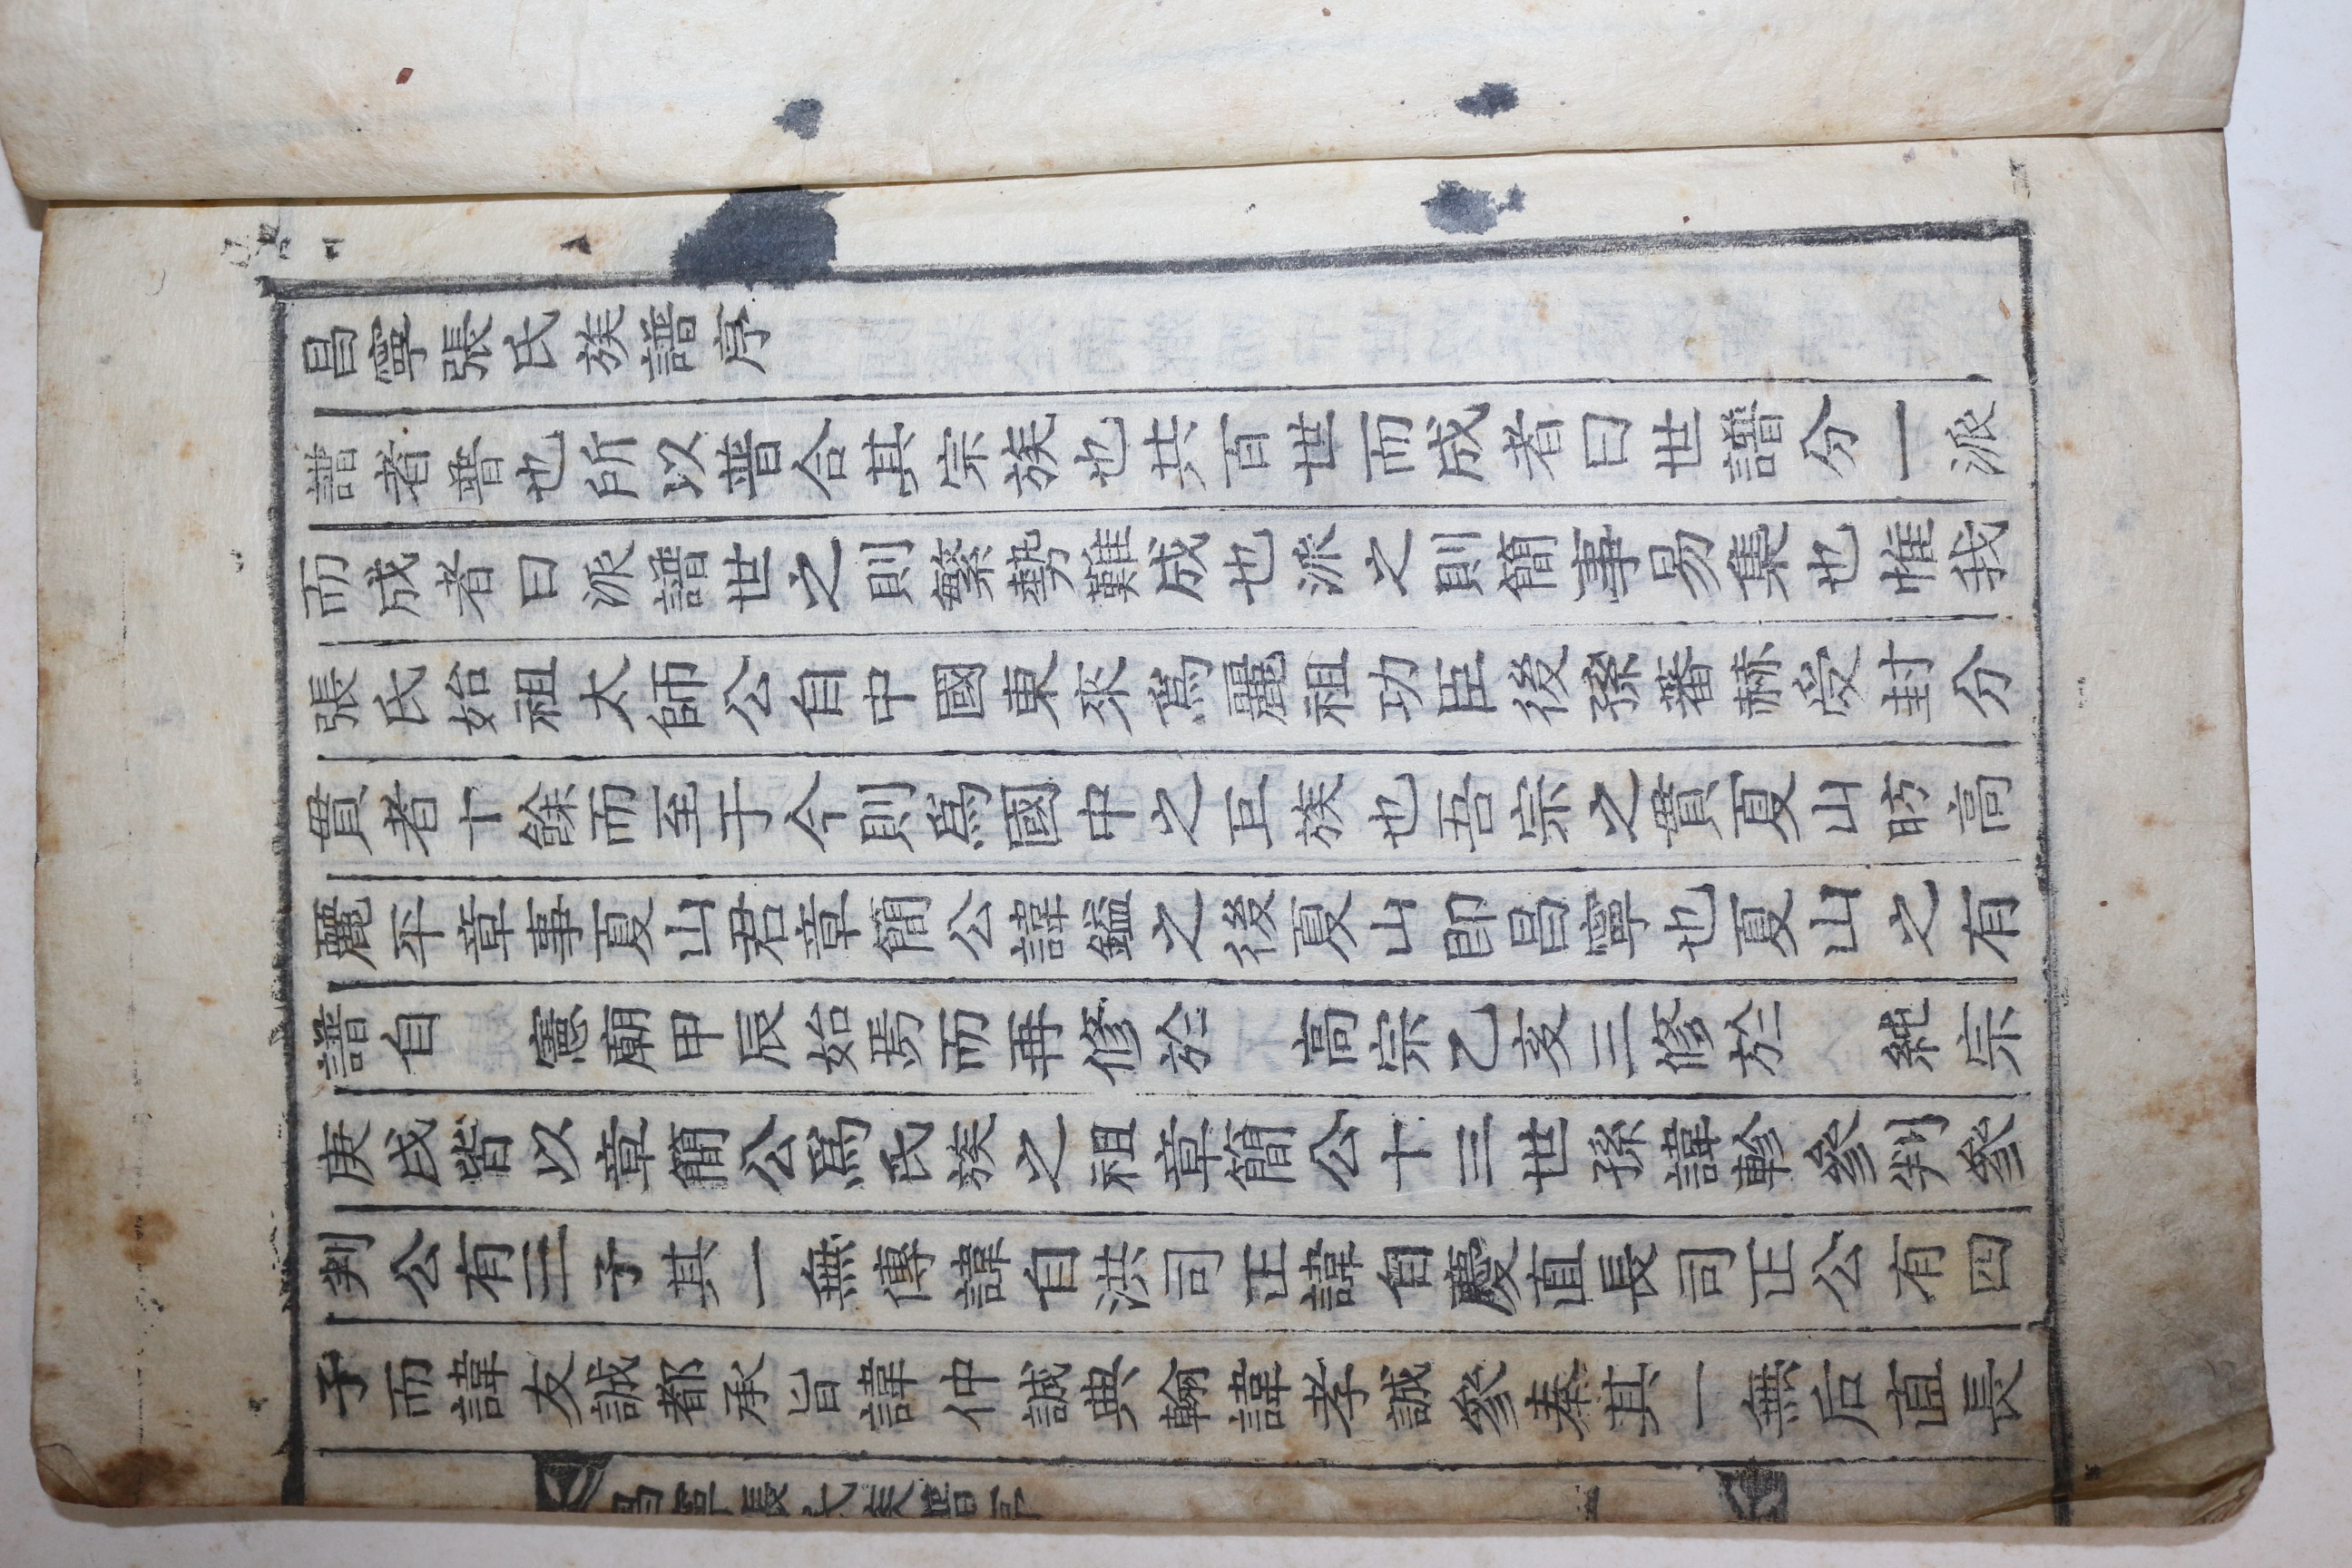 昌寧張氏族譜序
譜者普也所以普合其宗族也共百世而成者曰世譜分一派
而成者曰派譜世之則繁勢難成也派之則簡事易集也惟我
張氏始祖太師公自中國東來爲麗祖功臣後孫蕃赫受封分
貫者十餘而至于今則爲國中之巨族也吾宗之貫夏山昉高
麗平章事夏山君章簡公諱鎰之後夏山卽昌寧也夏山之有
譜自 憲廟甲辰始焉而再修於 高宗乙亥三修於 純宗
庚戌皆以章簡公爲氏族之祖章簡公十三世孫諱軫參判參
判公有三子其一無傳諱自洪司正諱自慶直長司正公有四
子而諱友誠都承旨諱仲誠典翰諱孝誠參奉其一無后直長
昌寧張氏族譜序 一